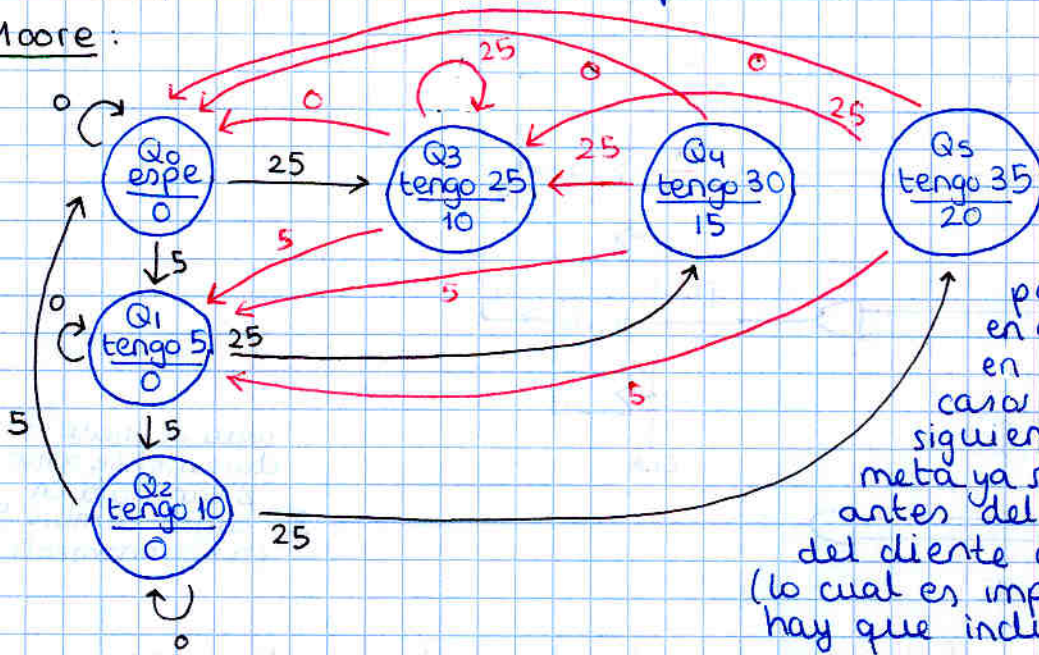 Moore :
25
0
0
0
0
25
Q0
espe
0
25
Q3
tengo 25
10
25
Q4
tengo 30
15
Q5
tengo 35
20
5
5
5
0
Q1
tengo 5
0
25
5
5
5
Q2
tengo 10
0
25
0
en
en
casos
siguien
meta ya s
antes del
del cliente
(lo cual es imp
hay que inclu